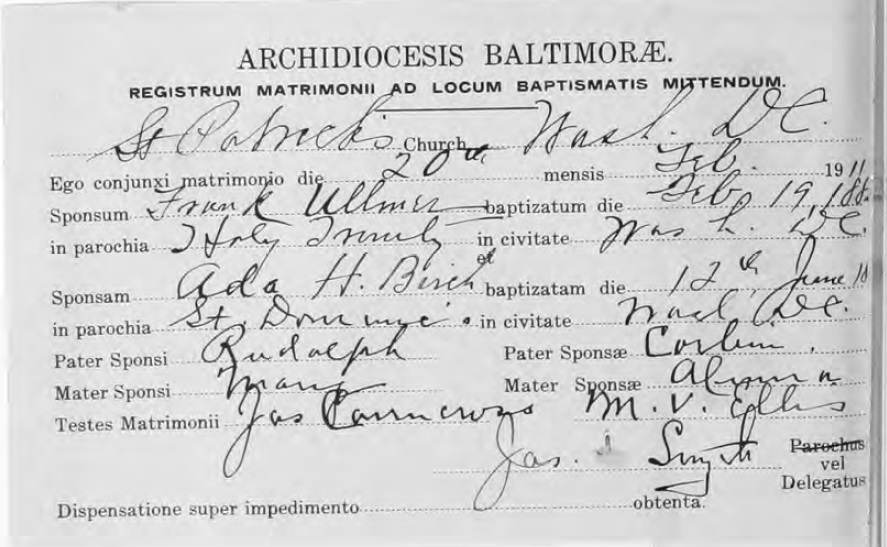 ARCHIDIOCESIS BALTIMORÆ.
REGISTRUM MATRIMONII AD LOCUM BAPTISMATIS MITTENDUM.
St Patrick's Church Wash. DC.
Ego conjunxi matrimonio die 20th mensis Feb. 1911
Sponsum Frank Ullmer baptizatum die Feb 19, 188
in parochia Holy Trinity in civitate Wash. DC.
et
Sponsam Ada H. Birch baptizatam die 12th June 18
in parochia St. Dominic's in civitate Wash DC.
Pater Sponsi Rudolph Pater Sponsæ
Mater Sponsi Mary Mater Sponsæ
Testes Matrimonii Jas M. V. Ellis
Jas. Smyth Parochus
vel
Delegatus
Dispensatione super impedimento obtenta.